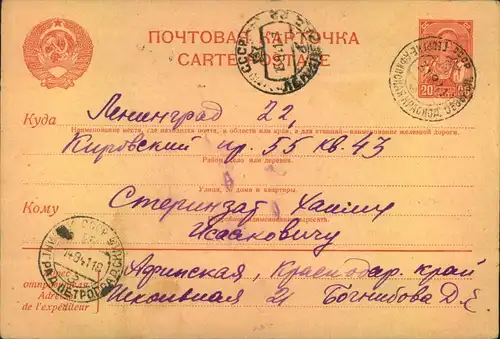 ПОЧТОВАЯ КАРТОЧКА
CARTE POSTALE
20
Куда Ленинград 22,
Наименование места, где находится почта, и области или края, а для станций—наименование железной дороги.
Кировский пр. 55 кв. 43
Район, село или деревня.
Улица, № дома и квартиры.
Кому Стеринзат Хаиму
Исааковичу
Адрес отправителя
Adresse de l'expéditeur
Афинская, Краснодар. край
Школьная 21